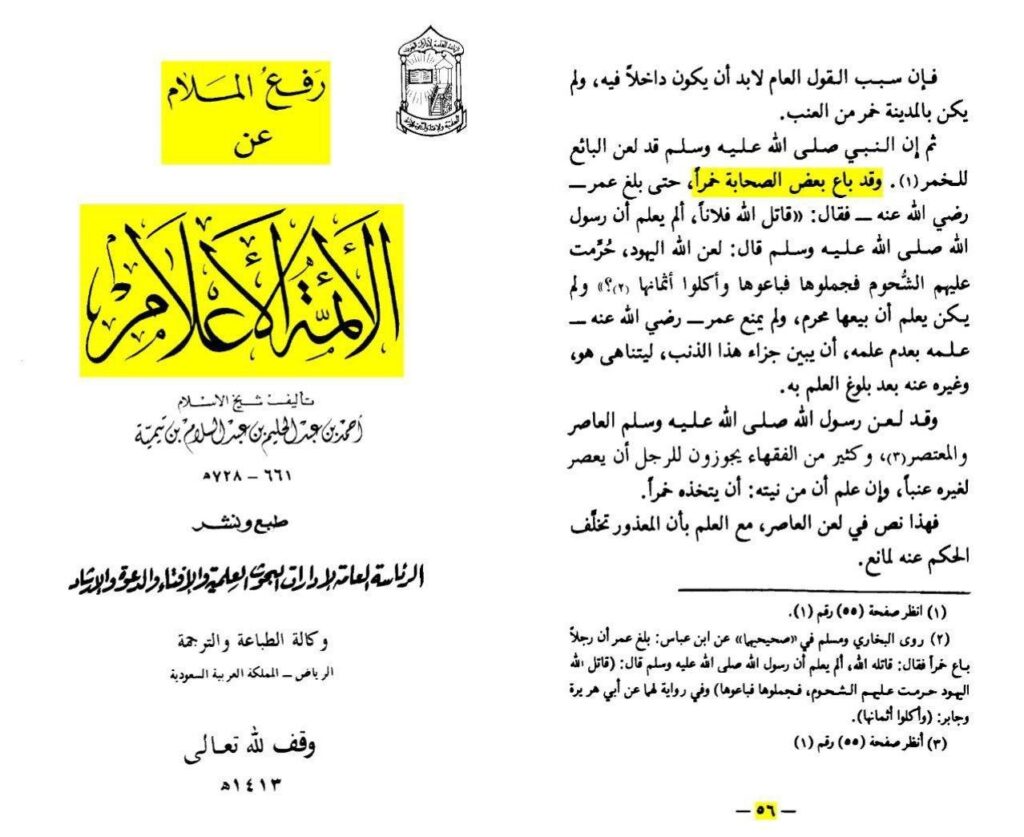 رَفعُ المَلام
عن
الأئمة الأعلام
تأليف شيخ الاسلام
أحمد بن عبد الحليم بن عبد السلام بن تيمية
٦٦١ – ٧٢٨هـ
طبع ونشر
الرئاسة العامة لإدارات البحوث العلمية والإفتاء والدعوة والإرشاد
وكالة الطباعة والترجمة
الرياض ــ المملكة العربية السعودية
وقف لله تعالى
١٤١٣هـ
فإن سبب القول العام لابد أن يكون داخلاً فيه، ولم
يكن بالمدينة خمر من العنب.
ثم إن النبي صلى الله عليه وسلم قد لعن البائع
للخمر (١). وقد باع بعض الصحابة خمراً، حتى بلغ عمر ــ
رضي الله عنه ــ فقال: «قاتل الله فلاناً، ألم يعلم أن رسول
الله صلى الله عليه وسلم قال: لعن الله اليهود، حُرِّمت
عليهم الشُّحوم فجملوها فباعوها وأكلوا أثمانها (٢)؟» ولم
يكن يعلم أن بيعها محرم، ولم يمنع عمر ــ رضي الله عنه ــ
علمه بعدم علمه، أن يبين جزاء هذا الذنب، ليتناهى هو،
وغيره عنه بعد بلوغ العلم به.
وقد لعن رسول الله صلى الله عليه وسلم العاصر
والمعتصر (٣)، وكثير من الفقهاء يجوزون للرجل أن يعصر
لغيره عنباً، وإن علم أن من نيته: أن يتخذه خمراً.
فهذا نص في لعن العاصر، مع العلم بأن المعذور تخلَّف
الحكم عنه لمانع.
(١) انظر صفحة (٥٥) رقم (١).
(٢) روى البخاري ومسلم في «صحيحيهما» عن ابن عباس: بلغ عمر أن رجلاً
باع خمراً فقال: قاتله الله، ألم يعلم أن رسول الله صلى الله عليه وسلم قال: (قاتل الله
اليهود حرمت عليهم الشحوم، فجملوها فباعوها) وفي رواية لهما عن أبي هريرة
وجابر: (وأكلوا أثمانها).
(٣) أنظر صفحة (٥٥) رقم (١)
— ٥٦ —